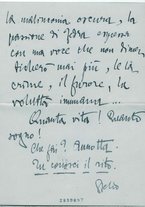 la malinconia oscura, la
passione di Fedra espressa
con una voce che non dimen-
ticherò mai più, le la-
crime, il furore, la
voluttà inumana ...
Quanta vita! Quanto
sogno!
Che fai? Annotta.
Tu conosci il rito.